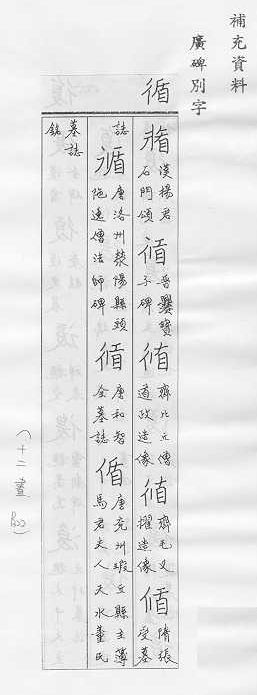 補充資料
廣碑別字
循
循 漢楊君石門頌 循 晉爨寶子碑 循 齊比丘僧道政造像 循 齊毛乂擢造像 循 隋張受墓
誌 循 唐洛州滎陽縣頭陁逺僧法師碑 循 唐和智全墓誌 循 唐兖州瑕丘縣主簿馬君夫人天水董氏
墓誌銘
(十二畫 802)